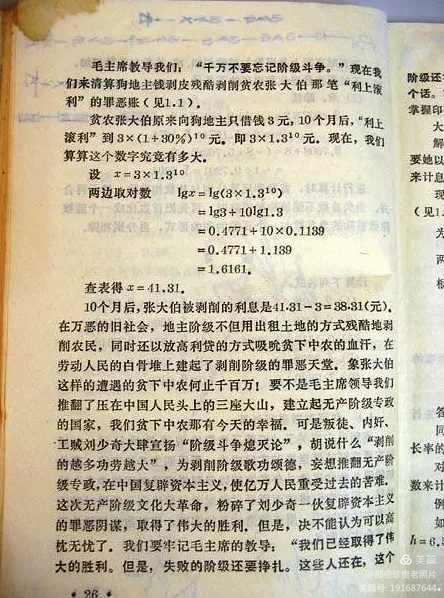 毛主席教导我们：“千万不要忘记阶级斗争。”现在我
们来清算狗地主钱剥皮残酷剥削贫农张大伯那笔“利上滚
利”的罪恶账（见1.1）。
贫农张大伯原来向狗地主只借钱3元，10个月后，“利上
滚利”到3×(1+30%)¹⁰元。即3×1.3¹⁰元。现在，我们
算算这个数字究竟有多大。
设 x=3×1.3¹⁰
两边取对数 lgx=lg(3×1.3¹⁰)
=lg3+10lg1.3
=0.4771+10×0.1139
=0.4771+1.139
=1.6161.
查表得 x=41.31.
10个月后，张大伯被剥削的利息是41.31-3=38.31(元)。
在万恶的旧社会，地主阶级不但用出租土地的方式残酷地剥
削农民，同时还以放高利贷的方式吸吮贫下中农的血汗，在
劳动人民的白骨堆上建起了剥削阶级的罪恶天堂。象张大伯
这样的遭遇的贫下中农何止千百万！要不是毛主席领导我们
推翻了压在中国人民头上的三座大山，建立起无产阶级专政
的国家，我们贫下中农那有今天的幸福。可是叛徒、内奸、
工贼刘少奇大肆宣扬“阶级斗争熄灭论”，胡说什么“剥削
的越多功劳越大”，为剥削阶级歌功颂德，妄想推翻无产阶
级专政，在中国复辟资本主义，使亿万人民重受过去的苦难。
这次无产阶级文化大革命，粉碎了刘少奇一伙复辟资本主义
的罪恶阴谋，取得了伟大的胜利。但是，决不能认为可以高
枕无忧了。我们要牢记毛主席的教导：“我们已经取得了伟
大的胜利。但是，失败的阶级还要挣扎。这些人还在，这个
·26·
阶级还
个话。
掌握印
大
解
要她以
来计息
现
(见1.
为
两
根
答
同
长率的
对
数来计
例
如
h=6.
美篇
美篇号：191687644